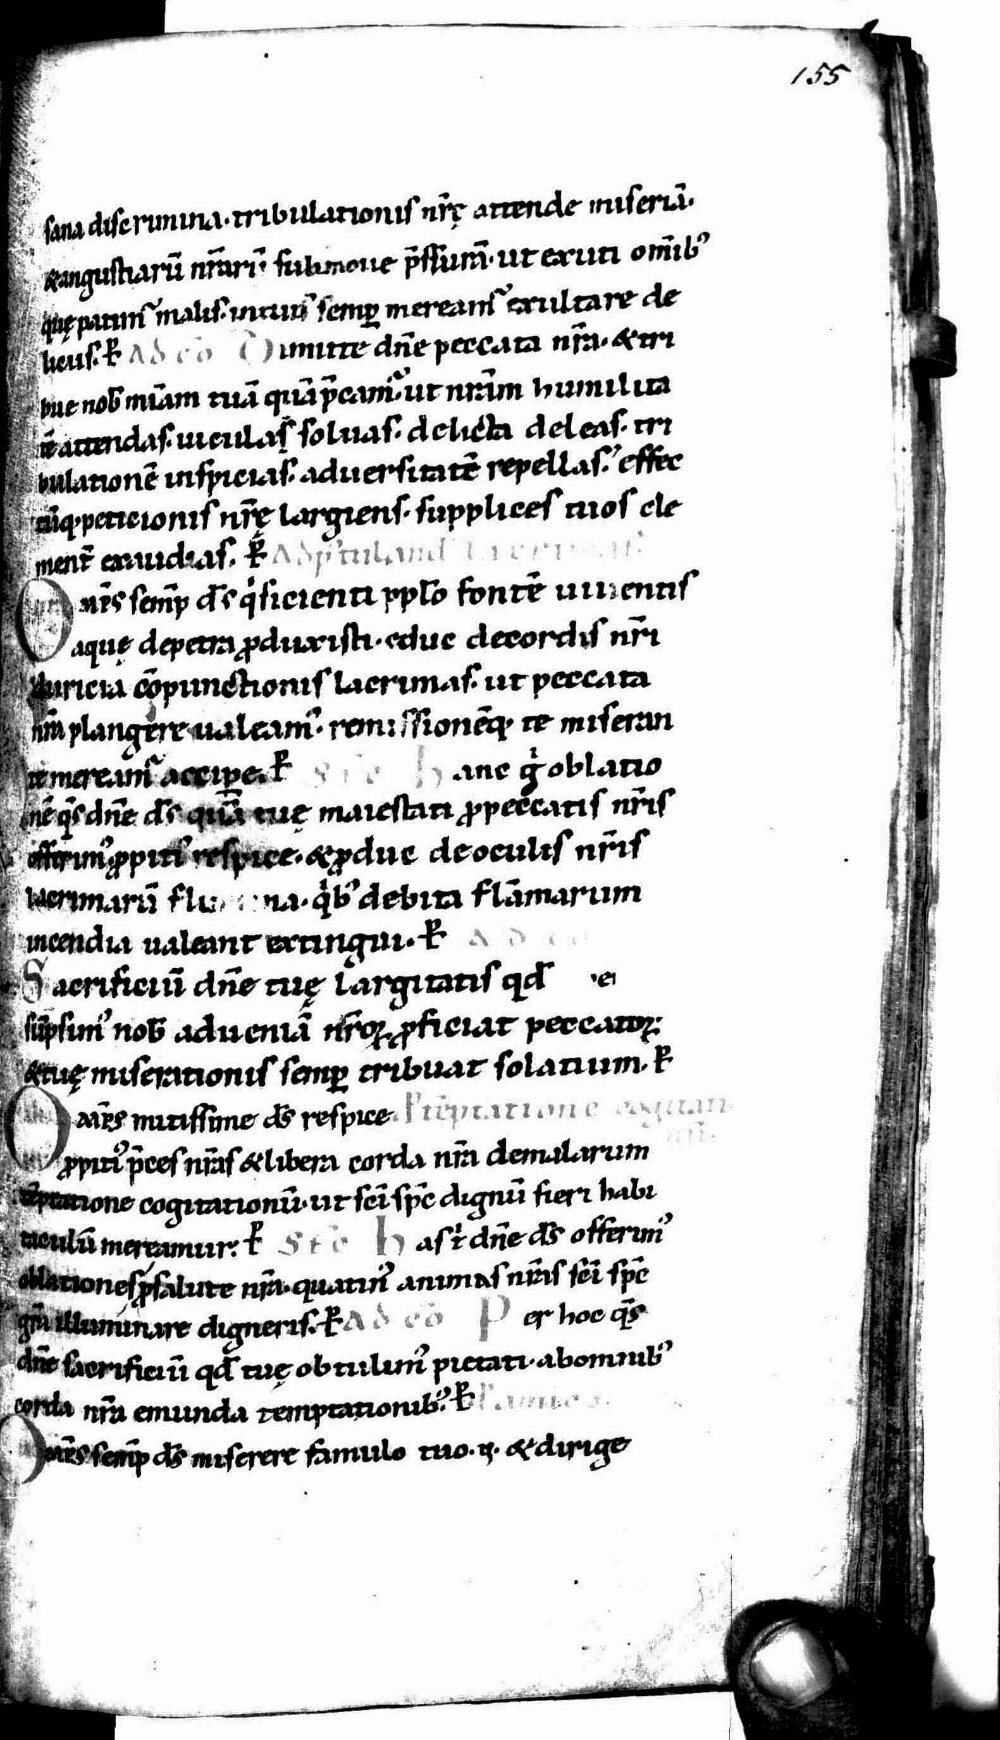 155
sana discrimina. tribulationis nr̄ę attende miseriā.
&angustiarū nr̄arū. submoue p̄ssurā. ut exuti om̄ibꝰ
quę patimꝰ malis. uitiis semp̱ mereamꝰ exultare de
liciis. P̄ Ad cō Dimitte dn̄e peccata nr̄a. & tri
bue nob̄ mīam tuā quā p̄camꝰ. ut nr̄am humilita
tē attendas. uicula soluas. delicta deleas. tri
bulationē inspicias. aduersitatē repellas. effec
tūq. peticionis nr̄ę largiens. supplices tuos cle
ment̄ exaudias. P̄ Ad postuland lacrimas.
Om̄ps semp̄ d̄s q sicienti pplo fontē uiuentis
aquę depetra ꝓduxisti. educ decordis nr̄i
duricia cōpunctionis lacrimas. ut peccata
nr̄a plangere ualeamꝰ. remissionēq. te miseran
te mereamꝰ accipe. P̄ Ste hanc g oblatio
nē q̄s dn̄e d̄s quā tuę maiestati ꝓpeccatis nr̄is
offerimꝰ ꝓpitiꝰ respice. &ꝓduc deoculis nr̄is
lacrimarū flu na. qbꝰ debita flāmarum
incendia ualeant extingui. P̄ Ad co
Sacrificiū dn̄e tuę largitatis qd̄
sūpsimꝰ nob̄ adueniā nr̄oꝝ ꝓficiat peccatoꝝ.
&tuę miserationis semp̱ tribuat solatium. P̄
Om̄ps mitissime d̄s respice P tēptatione cogitan
ꝓpitiꝰ p̄ces nr̄as &libera corda nr̄a demalarum
tēptatione cogitationū. ut sc̄i sp̄c dignū fieri habi
taculū mereamur. P̄ Ste has t dn̄e d̄s offerimꝰ
oblationes ꝓsalute nr̄a. quatinꝰ animas nr̄as sc̄i sp̄c
gr̄a illuminare digneris. P̄ Ad cō Per hoc q̄s
dn̄e sacrificiū qd̄ tuę obtulimꝰ pietati. abomnibꝰ
corda nr̄a emunda temptationibꝰ. P̄ amico
Om̄ps semp̄ d̄s miserere famulo tuo. N. &dirige